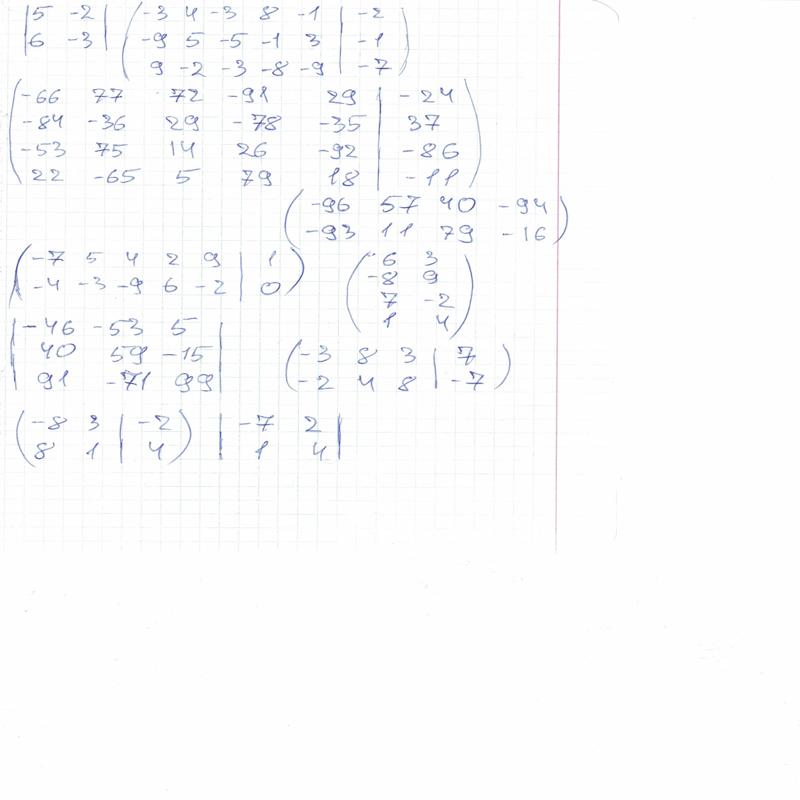 |5 -2| (-3 4 -3 8 -1 | -2)
|6 -3| (-9 5 -5 -1 3 | -1)
(9 -2 -3 -8 -9 | -7)
(-66 77 72 -91 29 | -24)
(-84 -36 29 -78 -35 | 37)
(-53 75 14 26 -92 | -86)
(22 -65 5 79 18 | -11)
(-96 57 40 -94)
(-93 11 79 -16)
(-7 5 4 2 9 | 1)
(-4 -3 -9 6 -2 | 0)
(6 3)
(-8 9)
(7 -2)
(1 4)
|-46 -53 5|
|40 59 -15|
|91 -71 99|
(-3 8 3 | 7)
(-2 4 8 | -7)
(-8 3 | -2) |-7 2|
(8 1 | 4) |1 4|